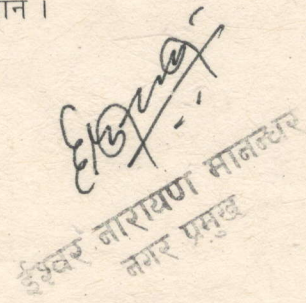 ान ।
ईश्वर नारायण मानन्धर
नगर प्रमुख